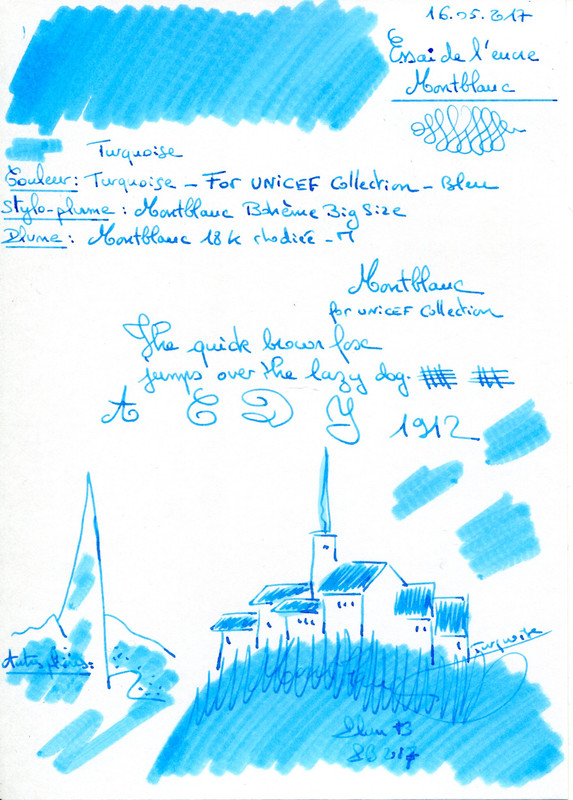 16.05.2017
Essai de l'encre
Montblanc
Turquoise
Couleur : Turquoise – For UNICEF Collection – Bleu
Stylo-plume : Montblanc Bohème Big Size
Plume : Montblanc 18 k rhodiée – M
Montblanc
for UNICEF Collection
The quick brown fox
jumps over the lazy dog.
A C D Y 1912
Turquoise